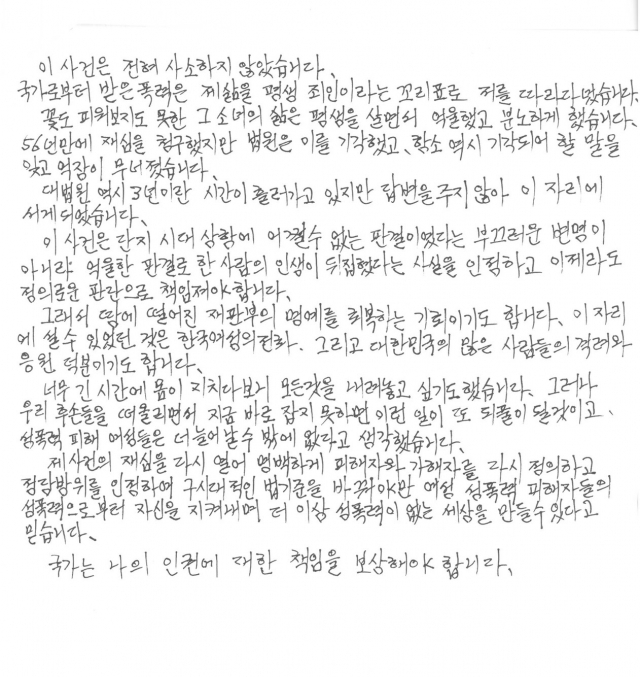 이 사건은 전혀 사소하지 않았습니다.
국가로부터 받은 폭력은 제 삶을 평생 죄인이라는 꼬리표로 저를 따라다녔습니다.
꽃도 피워보지도 못한 그 소녀의 삶은 평생을 살면서 억울했고 분노하게 했습니다.
56년만에 재심을 청구했지만 법원은 이를 기각했고, 항소 역시 기각되어 할 말을
잊고 억장이 무너졌습니다.
대법원 역시 3년이란 시간이 흘러가고 있지만 답변을 주지 않아 이 자리에
서게 되었습니다.
이 사건은 단지 시대 상황에 어쩔수 없는 판결이였다는 부끄러운 변명이
아니라 억울한 판결로 한 사람의 인생이 뒤집혔다는 사실을 인정하고 이제라도
정의로운 판단으로 책임져야 합니다.
그래서 땅에 떨어진 재판부의 명예를 회복하는 기회이기도 합니다. 이 자리
에 설 수 있었던 것은 한국여성의전화. 그리고 대한민국의 많은 사람들의 격려와
응원 덕분이기도 합니다.
너무 긴 시간에 몸이 지치다보니 모든것을 내려놓고 싶기도했습니다. 그러나
우리 후손들을 떠올리면서 지금 바로 잡지 못하면 이런 일이 또 되풀이 될것이고,
성폭력 피해 여성들은 더 늘어날 수 밖에 없다고 생각했습니다.
제사건의 재심을 다시 열어 명백하게 피해자와 가해자를 다시 정의하고
정당방위를 인정하여 구시대적인 법기준을 바꿔야만 여성 성폭력 피해자들의
성폭력으로부터 자신을 지켜내며 더 이상 성폭력이 없는 세상을 만들수 있다고
믿습니다.
국가는 나의 인권에 대한 책임을 보상해야 합니다.